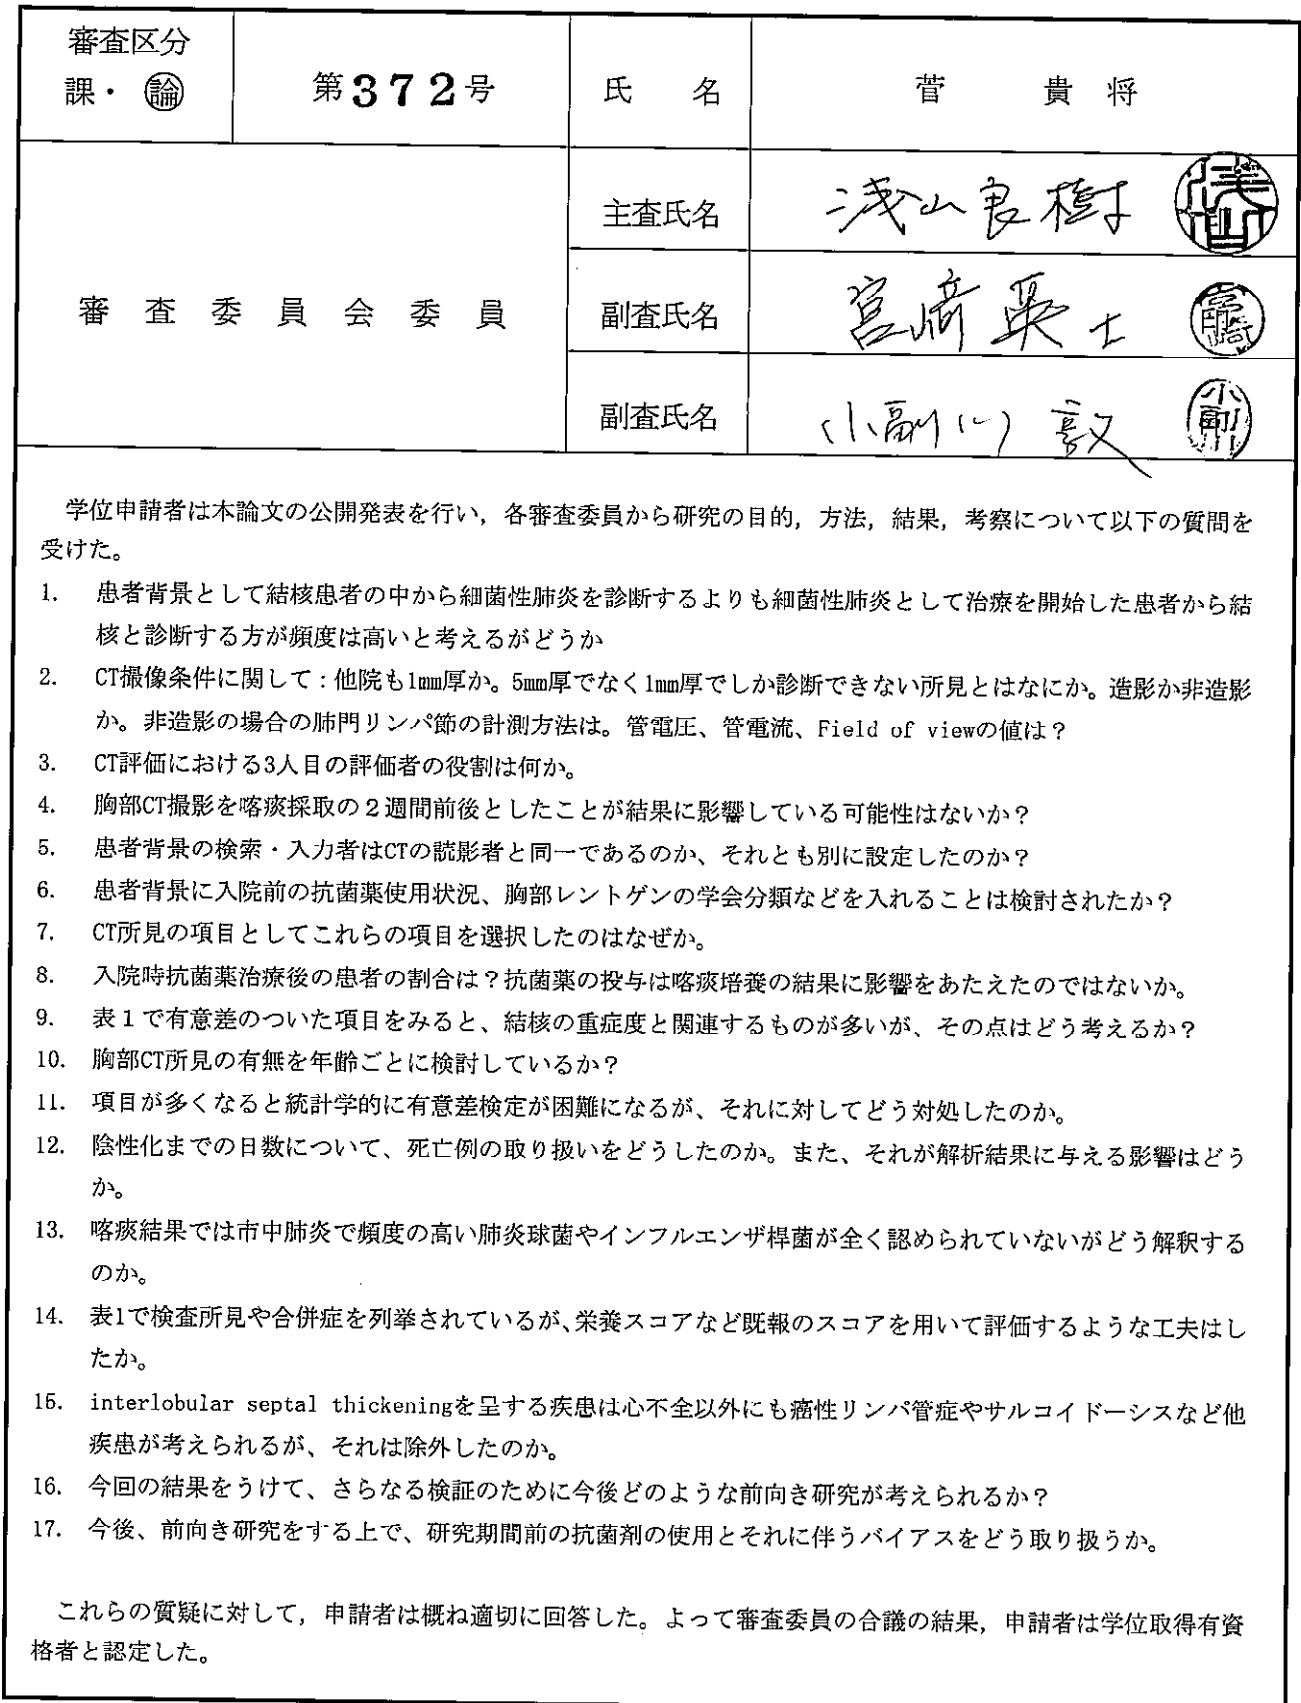 審査区分
課・論
第372号
氏 名
菅 貴 将
審 査 委 員 会 委 員
主査氏名
浅山良樹
浅山
副査氏名
宮﨑英士
宮﨑
副査氏名
小副川敦
小副川
学位申請者は本論文の公開発表を行い，各審査委員から研究の目的，方法，結果，考察について以下の質問を
受けた。
1. 患者背景として結核患者の中から細菌性肺炎を診断するよりも細菌性肺炎として治療を開始した患者から結
核と診断する方が頻度は高いと考えるがどうか
2. CT撮像条件に関して：他院も1mm厚か。5mm厚でなく1mm厚でしか診断できない所見とはなにか。造影か非造影
か。非造影の場合の肺門リンパ節の計測方法は。管電圧、管電流、Field of viewの値は？
3. CT評価における3人目の評価者の役割は何か。
4. 胸部CT撮影を喀痰採取の２週間前後としたことが結果に影響している可能性はないか？
5. 患者背景の検索・入力者はCTの読影者と同一であるのか、それとも別に設定したのか？
6. 患者背景に入院前の抗菌薬使用状況、胸部レントゲンの学会分類などを入れることは検討されたか？
7. CT所見の項目としてこれらの項目を選択したのはなぜか。
8. 入院時抗菌薬治療後の患者の割合は？抗菌薬の投与は喀痰培養の結果に影響をあたえたのではないか。
9. 表１で有意差のついた項目をみると、結核の重症度と関連するものが多いが、その点はどう考えるか？
10. 胸部CT所見の有無を年齢ごとに検討しているか？
11. 項目が多くなると統計学的に有意差検定が困難になるが、それに対してどう対処したのか。
12. 陰性化までの日数について、死亡例の取り扱いをどうしたのか。また、それが解析結果に与える影響はどう
か。
13. 喀痰結果では市中肺炎で頻度の高い肺炎球菌やインフルエンザ桿菌が全く認められていないがどう解釈する
のか。
14. 表1で検査所見や合併症を列挙されているが、栄養スコアなど既報のスコアを用いて評価するような工夫はし
たか。
15. interlobular septal thickeningを呈する疾患は心不全以外にも癌性リンパ管症やサルコイドーシスなど他
疾患が考えられるが、それは除外したのか。
16. 今回の結果をうけて、さらなる検証のために今後どのような前向き研究が考えられるか？
17. 今後、前向き研究をする上で、研究期間前の抗菌剤の使用とそれに伴うバイアスをどう取り扱うか。
これらの質疑に対して，申請者は概ね適切に回答した。よって審査委員の合議の結果，申請者は学位取得有資
格者と認定した。